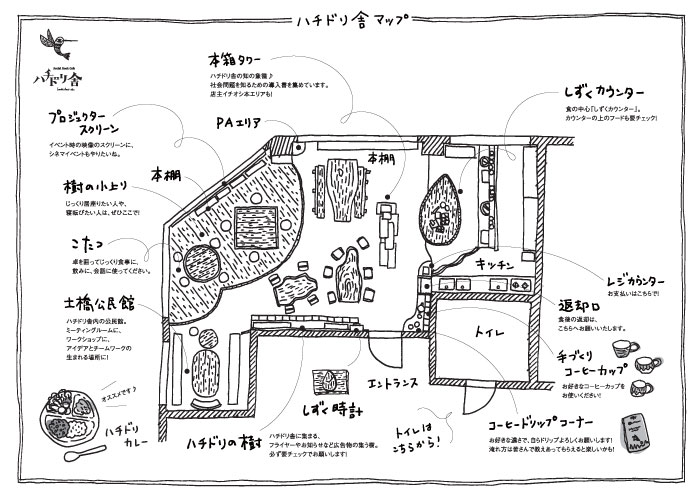 ハチドリ舎マップ
Social Book Cafe
ハチドリ舎
本箱タワー
ハチドリ舎の知の象徴♪
社会問題を知るための導入書を集めています。
店主イチオシ本エリアも!
しずくカウンター
食の中心「しずくカウンター」。
カウンターの上のフードも要チェック!
プロジェクター
スクリーン
イベント時の映像のスクリーンに、
シネマイベントもやりたいね。
PAエリア
本棚
本棚
樹の小上り
じっくり居座りたい人や、
寝転びたい人は、ぜひここで!
こたつ
卓を囲ってじっくり食事に、
飲みに、会話に使ってください。
キッチン
レジカウンター
お支払いはこちらで!
土橋公民館
ハチドリ舎内の公民館。
ミーティングルームに、
ワークショップに、
アイデアとチームワークの
生まれる場所に!
返却口
食後の返却は、
こちらへお願いいたします。
トイレ
手づくり
コーヒーカップ
お好きなコーヒーカップを
お使いください!
エントランス
しずく時計
オススメです♪
ハチドリ
カレー
ハチドリの樹
ハチドリ舎に集まる、
フライヤーやお知らせなど広告物の集う樹。
必ず要チェックでお願いします!
トイレは
こちらから!
コーヒードリップコーナー
お好きな濃さで、自らドリップよろしくお願いします!
淹れ方は皆さんで教えあってもらえると楽しいかも!